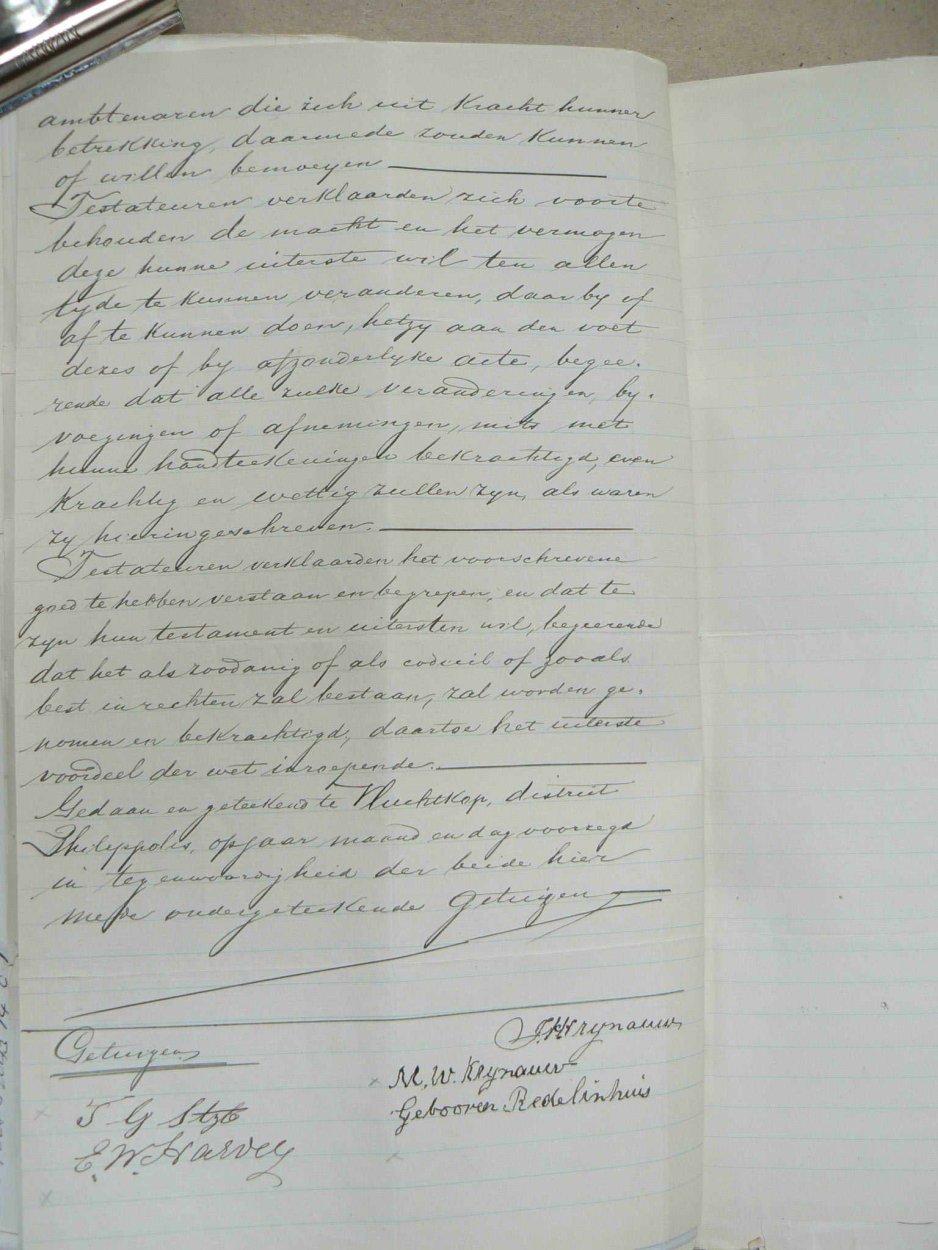 ambtenaren die zich uit kracht hunner
betrekking, daarmede zouden kunnen
of willen bemoeyen
Testateuren verklaarden zich voorte
behouden de macht en het vermogen
deze hunne uiterste wil ten allen
tyde te kunnen veranderen, daar by of
af te kunnen doen, hetzy aan den voet
dezes of by afzonderlyke acte, begee-
rende dat alle zulke veranderingen, by-
voegingen of afnemingen, mits met
hunne handteekeningen bekrachtigd, even
krachtig en wettig zullen zyn, als waren
zy hieringeschreven.
Testateuren verklaarden het voorschrevene
goed te hebben verstaan en begrepen, en dat te
zyn hun testament en uitersten wil, begeerende
dat het als zoodanig of als codicil of zooals
best in rechten zal bestaan, zal worden ge-
nomen en bekrachtigd, daartoe het uiterste
voordeel der wet inroepende.
Gedaan en geteekend te Vluchtkop, district
Philippolis, op jaar maand en dag voorzegd
in tegenwoordigheid der beide hier
mede ondergeteekende Getuigen
Getuigen
J H Krynauw
M. W. Krynauw
Gebooren Redelinhuis
T G
E. W. Harvey